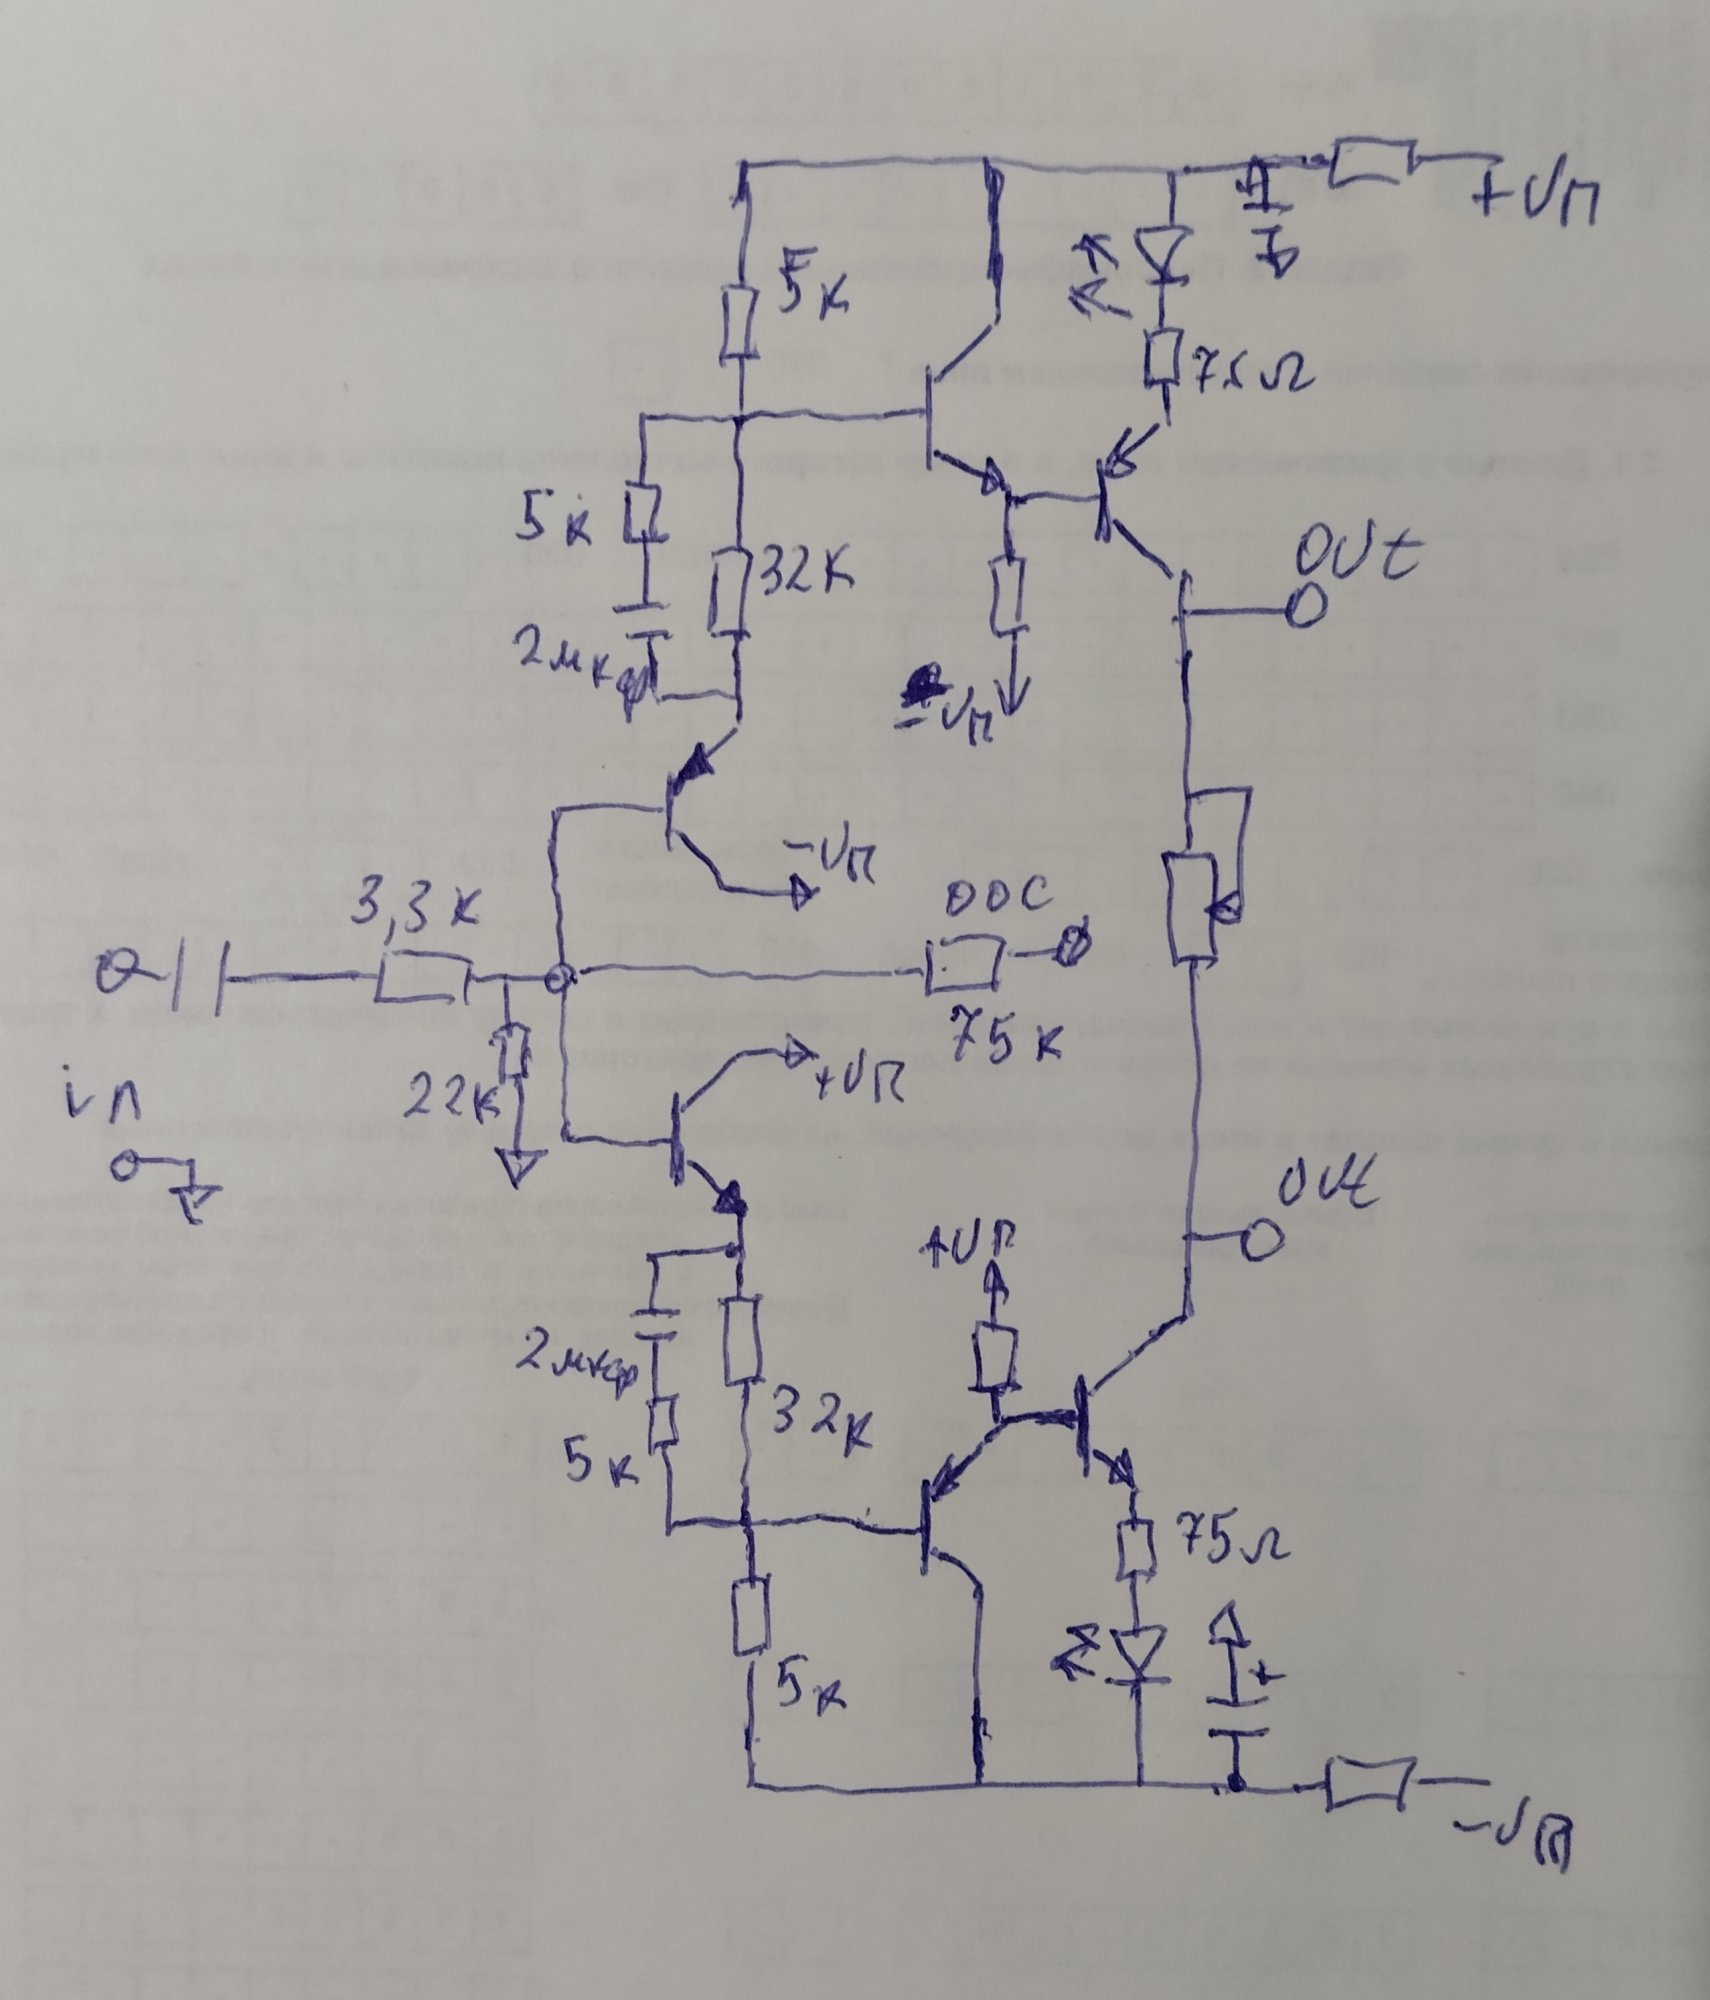 +Uп
5к
75Ω
5к
32к
2мкф
out
-Uп
-Uп
3,3к
оос
75к
in
22к
+Uп
out
+Uп
2мкф
32к
5к
75Ω
5к
+
-Uп